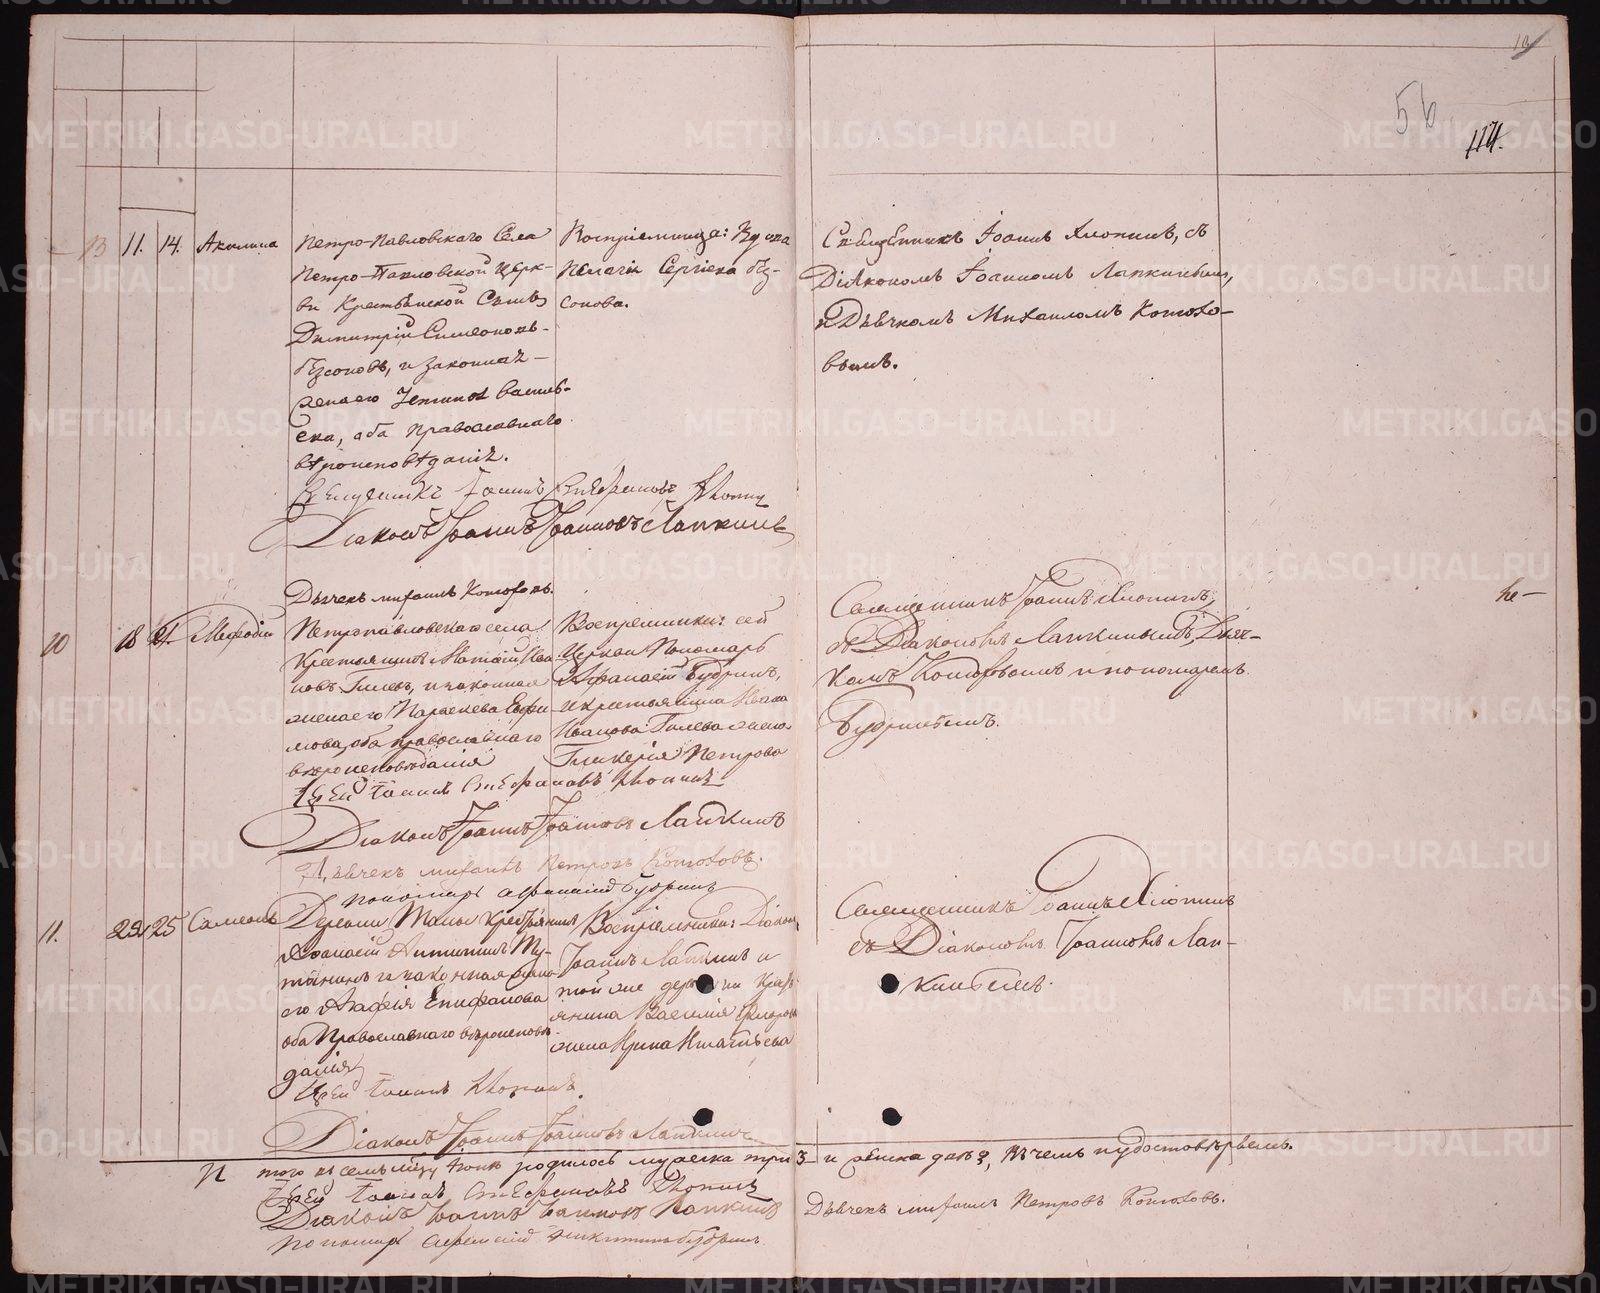 56
114.
13 11. 14. Акилина
Петро-Павловскаго Села
Петро-Павловской Церк-
ви Крестьянской Сынъ
Димитрій Симеоновъ
и законная
жена его Васильева,
оба православнаго
вѣроисповѣданія.
Воспріемница: Вдова
Пелагія Сергіева
Священникъ Іоаннъ Хлопинъ, съ
Діякономъ Іоанномъ Лапкинымъ,
и Дьячкомъ Михаиломъ Котюхо-
вымъ.
Священникъ Іоаннъ Стефановъ Хлопинъ
Діаконъ Іоаннъ Іоанновъ Лапкинъ
Дьячекъ Михаилъ Котюховъ.
10 18 21. Мефодій
Петропавловскаго села
Крестьянинъ Матѳій Ива-
новъ Гилевъ, и законная
жена его Параскева Ефи-
мова, оба православнаго
вѣроисповѣданія
Воспріемники: сей
Церкви Пономарь
Аѳанасій Будринъ,
и крестьянина Ивана
Иванова Гилева жена
Гликерія Петрова
Священникъ Іоаннъ Хлопинъ,
съ Діакономъ Лапкинымъ, Дьяч-
комъ Котюховымъ и пономаремъ
Будринымъ.
Іерей Іоаннъ Стефановъ Хлопинъ
Діаконъ Іоаннъ Іоанновъ Лапкинъ
Дьячекъ Михаилъ Петровъ Котюховъ.
Пономарь Аѳанасій Будринъ
11. 22 25 Самсонъ
Деревни Крестьянинъ
Аѳанасій Антипинъ
и законная жена
его Агафія Епифанова
оба Православнаго вѣроисповѣ
данія
Воспріемники: Діаконъ
Іоаннъ Лапкинъ и
той же деревни Кресть
янина Василія Ѳедорова
жена Ирина Игнатьева
Священникъ Іоаннъ Хлопинъ
съ Діакономъ Іоанномъ Лап-
кинымъ.
Іерей Іоаннъ Хлопинъ.
Діаконъ Іоаннъ Іоанновъ Лапкинъ
Итого въ семъ мѣсяцѣ Іюнѣ родилось мужеска три 3 и женска двѣ 2, въ чемъ и удостовѣряемъ.
Іерей Іоаннъ Стефановъ Хлопинъ
Діаконъ Іоаннъ Іоанновъ Лапкинъ
Дьячекъ Михаилъ Петровъ Котюховъ.
Пономарь Аѳанасій Никитинъ Будринъ.
METRIKI.GASO-URAL.RU